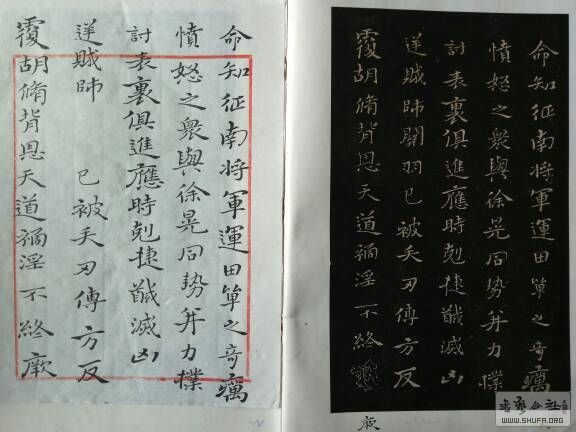 命知征南将軍運田單之奇厲
憤怒之衆與徐晃同勢并力撲
討表裏俱進應時剋捷馘滅凶
逆賊帥關羽已被矢刃傅方反
覆胡脩背恩天道禍淫不終
厥
命知征南将軍運田單之奇厲
憤怒之衆與徐晃同勢并力撲
討表裏俱進應時剋捷馘滅凶
逆賊帥 已被矢刃傅方反
覆胡脩背恩天道禍淫不終厥
书艺公社
WWW.SHUFA.ORG